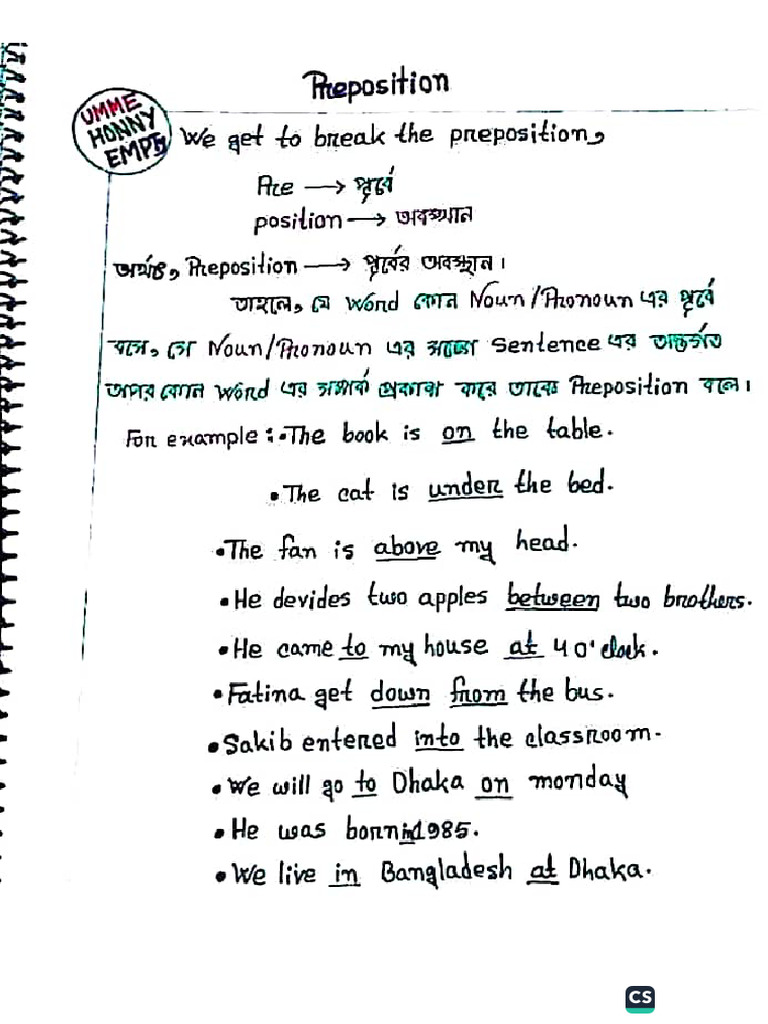 Preposition
UMME
HONNY
EMPE
We get to break the preposition,
Pre → পূর্বে
position → অবস্থান
অর্থাৎ, Preposition → পূর্বের অবস্থান।
তাহলে, যে Word কোন Noun/Pronoun এর পূর্বে
বসে, সে Noun/Pronoun এর সাথে Sentence এর অন্তর্গত
অপর কোন Word এর সম্পর্ক প্রকাশ করে তাকে Preposition বলে।
For example :- •The book is on the table.
•The cat is under the bed.
•The fan is above my head.
•He devides two apples between two brothers.
•He came to my house at 4 o'clock.
•Fatina get down from the bus.
•Sakib entered into the classroom.
•We will go to Dhaka on monday
•He was born in 1985.
•We live in Bangladesh at Dhaka.
CS